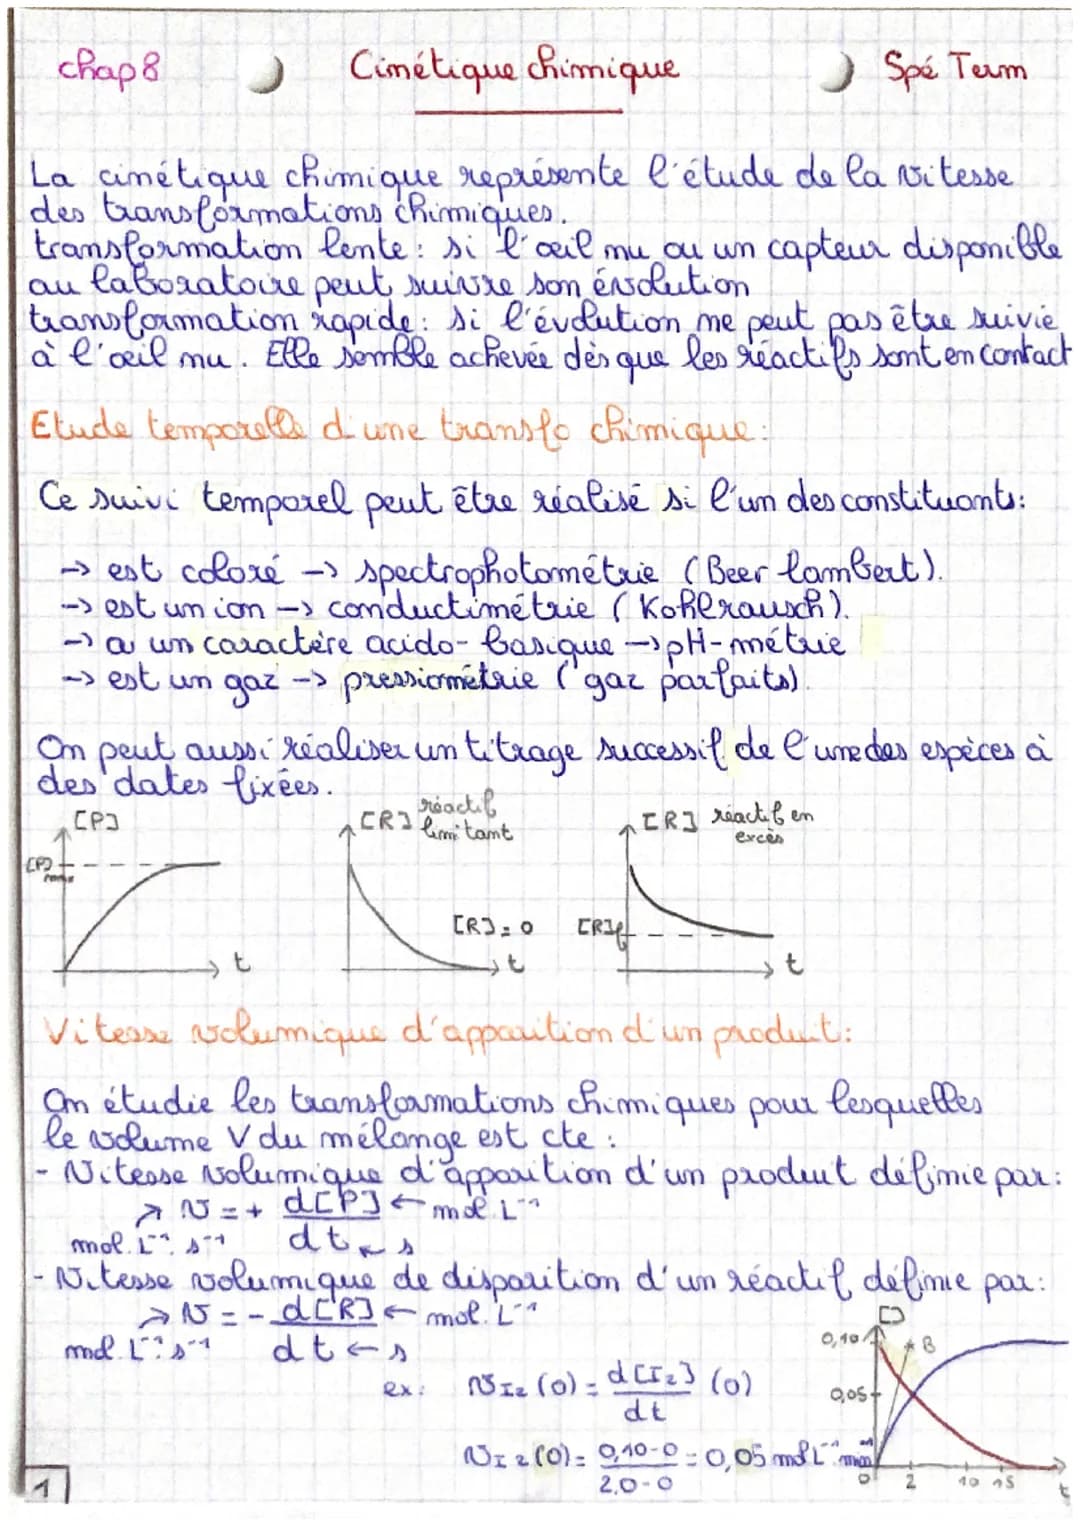 chap 8 Cinétique chimique Spé Term
La cinétique chimique représente l'étude de la vitesse
des transformations chimiques.
transformation lente : si l'œil nu ou un capteur disponible
au laboratoire peut suivre son évolution
transformation rapide : si l'évolution ne peut pas être suivie
à l'œil nu. Elle semble achevée dès que les réactifs sont en contact
Etude temporelle d'une transfo chimique :
Ce suivi temporel peut être réalisé si l'un des constituants :
-> est coloré -> spectrophotométrie (Beer lambert).
-> est un ion -> conductimétrie (Kohlrausch).
-> a un caractère acido-basique -> pH-métrie
-> est un gaz -> pressiométrie (gaz parfaits).
On peut aussi réaliser un titrage successif de l'une des espèces à
des dates fixées.
[P] [R] réactif limitant [R] réactif en excès
[P]max [R] = 0 [R]f
t t t
Vitesse volumique d'apparition d'un produit :
On étudie les transformations chimiques pour lesquelles
le volume V du mélange est cte :
- Vitesse volumique d'apparition d'un produit définie par :
-> v = + d[P] <- mol.L⁻¹
mol.L⁻¹.s⁻¹ dt <- s
- Vitesse volumique de disparition d'un réactif définie par :
-> v = - d[R] <- mol.L⁻¹
mol.L⁻¹.s⁻¹ dt <- s
ex : v I₂ (0) = d[I₂] (0)
dt
v I₂ (0) = 0,10-0 = 0,05 mol L⁻¹ min⁻¹
2,0-0
[]
0,10 B
0,05
0 2 10 15 t
1